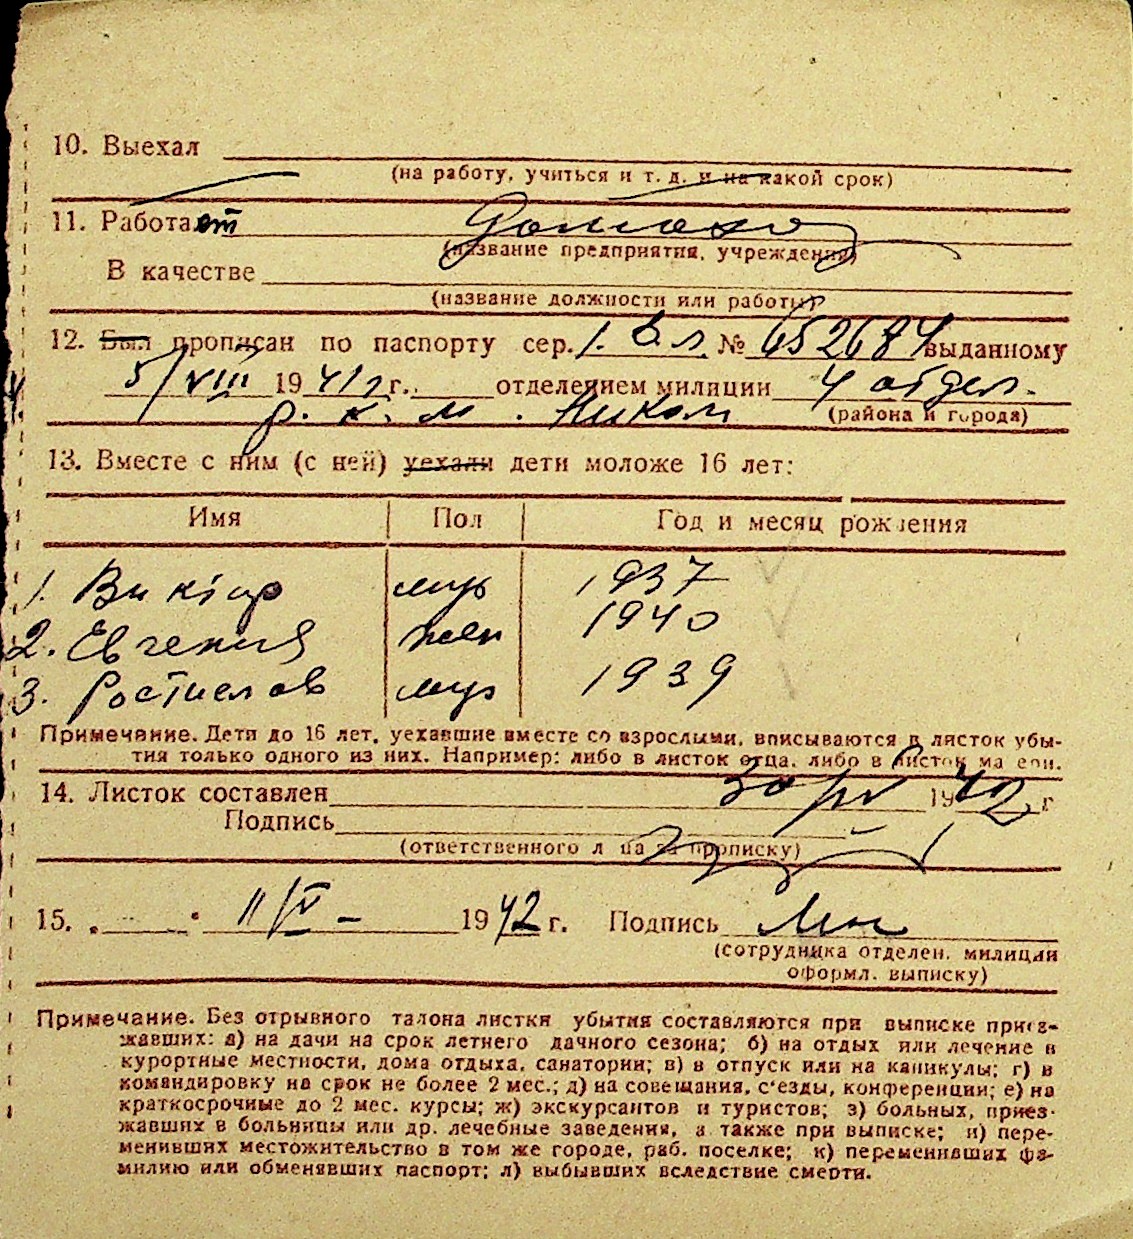 10. Выехал
(на работу, учиться и т. д. и на какой срок)
11. Работает
(название предприятия, учреждения)
В качестве
(название должности или работы)
12. Был прописан по паспорту сер. № 652684 выданному
5/VIII 1941 г. отделением милиции 4 отдел.
р. к. м. (района и города)
13. Вместе с ним (с ней) уехали дети моложе 16 лет:
Имя Пол Год и месяц рождения
1. Виктор муж 1937
2. Евгения жен 1940
3. Ростислав муж 1939
Примечание. Дети до 16 лет, уехавшие вместе со взрослыми, вписываются в листок убы-
тия только одного из них. Например: либо в листок отца, либо в листок матери.
14. Листок составлен 30/IV 1942 г
Подпись
(ответственного лица за прописку)
15. 11/V 1942 г. Подпись
(сотрудника отделен. милиции
оформл. выписку)
Примечание. Без отрывного талона листки убытия составляются при выписке приез-
жавших: а) на дачи на срок летнего дачного сезона; б) на отдых или лечение в
курортные местности, дома отдыха, санатории; в) в отпуск или на каникулы; г) в
командировку на срок не более 2 мес.; д) на совещания, с'езды, конференции; е) на
краткосрочные до 2 мес. курсы; ж) экскурсантов и туристов; з) больных, приез-
жавших в больницы или др. лечебные заведения, а также при выписке; и) пере-
менивших местожительство в том же городе, раб. поселке; к) переменивших фа-
милию или обменявших паспорт; л) выбывших вследствие смерти.